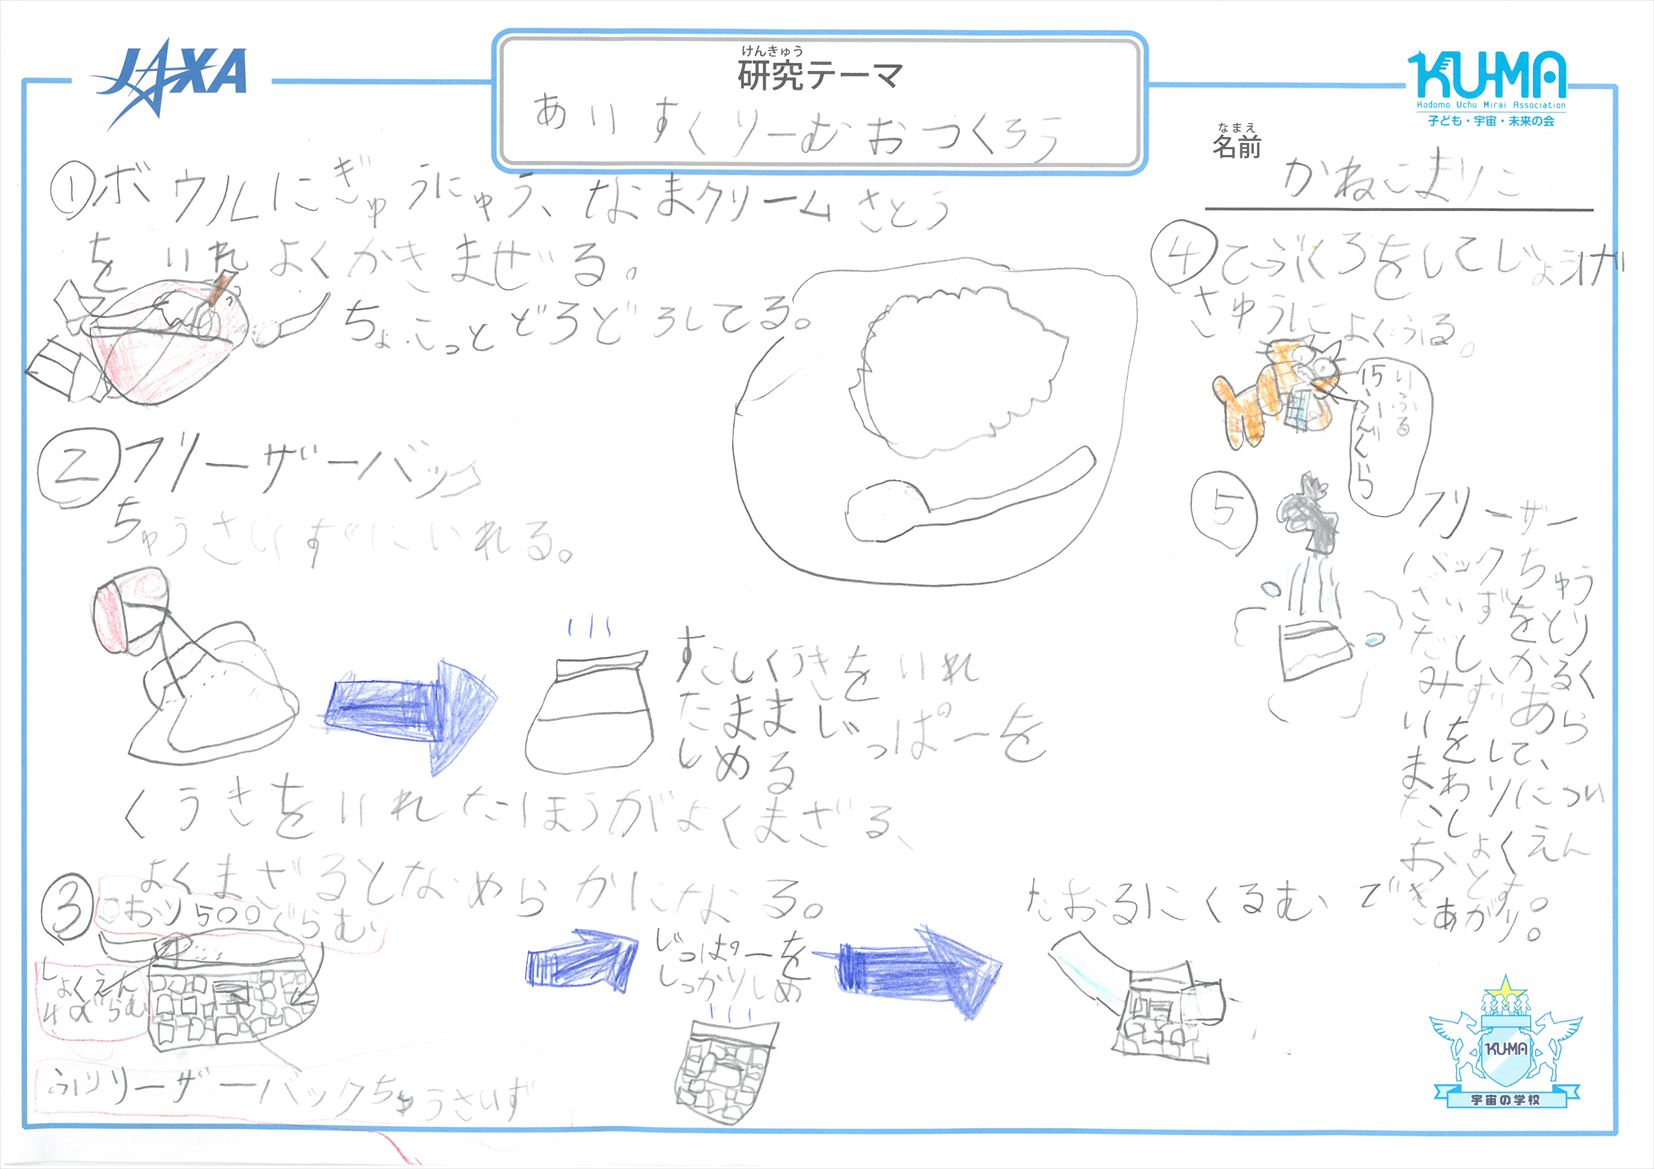 JAXA
けんきゅう
研究テーマ
あいすくりーむおつくろう
KU-MA
Kodomo Uchu Mirai Association
子ども・宇宙・未来の会
なまえ
名前
かねこまりこ
①ボウルにぎゅうにゅう、なまクリームさとう
をいれよくかきまぜる。
ちょこっとどろどろしてる。
②フリーザーバック
ちゅうさいずにいれる。
すこしくうきをいれ
たままじっぱーを
しめる
くうきをいれたほうがよくまざる、
よくまざるとなめらかになる。
③こおり500ぐらむ
しょくえん
ふりリーザーバックちゅうさいず
じっぱーを
しっかりしめ
たおるにくるむ
④てぶくろをしてじょうげ
さゆうによくふる。
15ふんぐらい
ふる
⑤
フリーザー
バックちゅう
さいずをとり
だし、かるく
みずあら
いをして、
まわりについ
たしょくえん
おおとす。
できあがり。
KU-MA
宇宙の学校